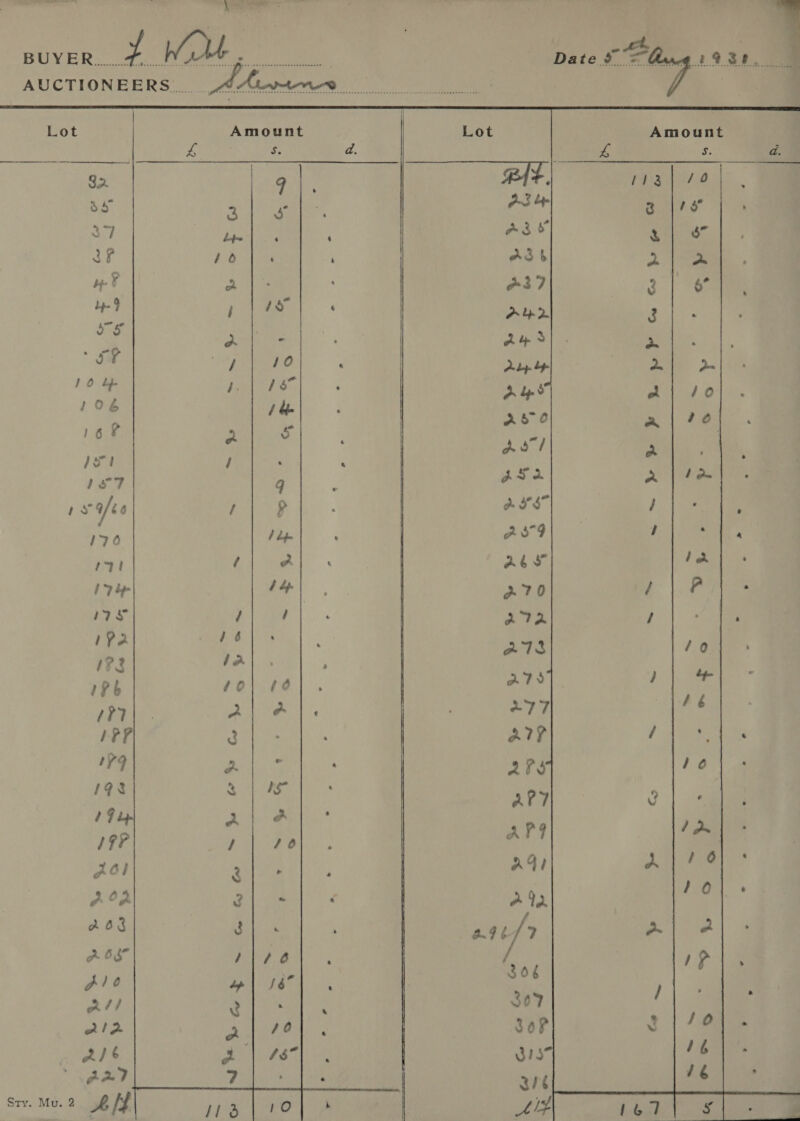 BUYER F. Wolt Date 5th Aug 1938
AUCTIONEERS Stevens
Lot Amount
£ s. d.
32 9 .
35 3 5 .
37 4 . .
38 10 . .
48 2 . .
49 1 15 .
55 2 - .
58 1 10 .
104 1 15 .
106 14 .
108 2 5 .
151 1 . .
157 9 .
159/60 1 8 .
170 14 .
171 1 2 .
174 14 .
175 1 1 .
182 16 . .
183 12 . .
186 10 10 .
187 2 2 .
188 3 . .
189 2 - .
193 3 15 .
194 2 2 .
198 1 10 .
201 3 - .
202 3 - .
203 3 . .
205 1 10 .
210 4 15 .
211 3 . .
212 2 10 .
216 2 15 .
227 7 . .
Sty. Mu. 2 113 10 .
Lot Amount
£ s. d.
B/F. 113 10 .
234 3 15 .
235 3 5 .
236 2 2 .
237 3 5 .
242 3 . .
243 2 . .
244 2 2 .
245 2 10 .
250 2 10 .
251 2 . .
252 2 12 .
255 1 . .
259 1 . .
265 12 .
270 1 8 .
272 1 . .
273 10 .
275 1 4 -
277 16 .
278 1 . .
285 10 .
287 3 . .
289 12 .
291 2 10 .
292 10 .
296/7 2 2 .
306 18 .
307 1 . .
308 3 10 .
315 16 .
316 16 .
167 5 .